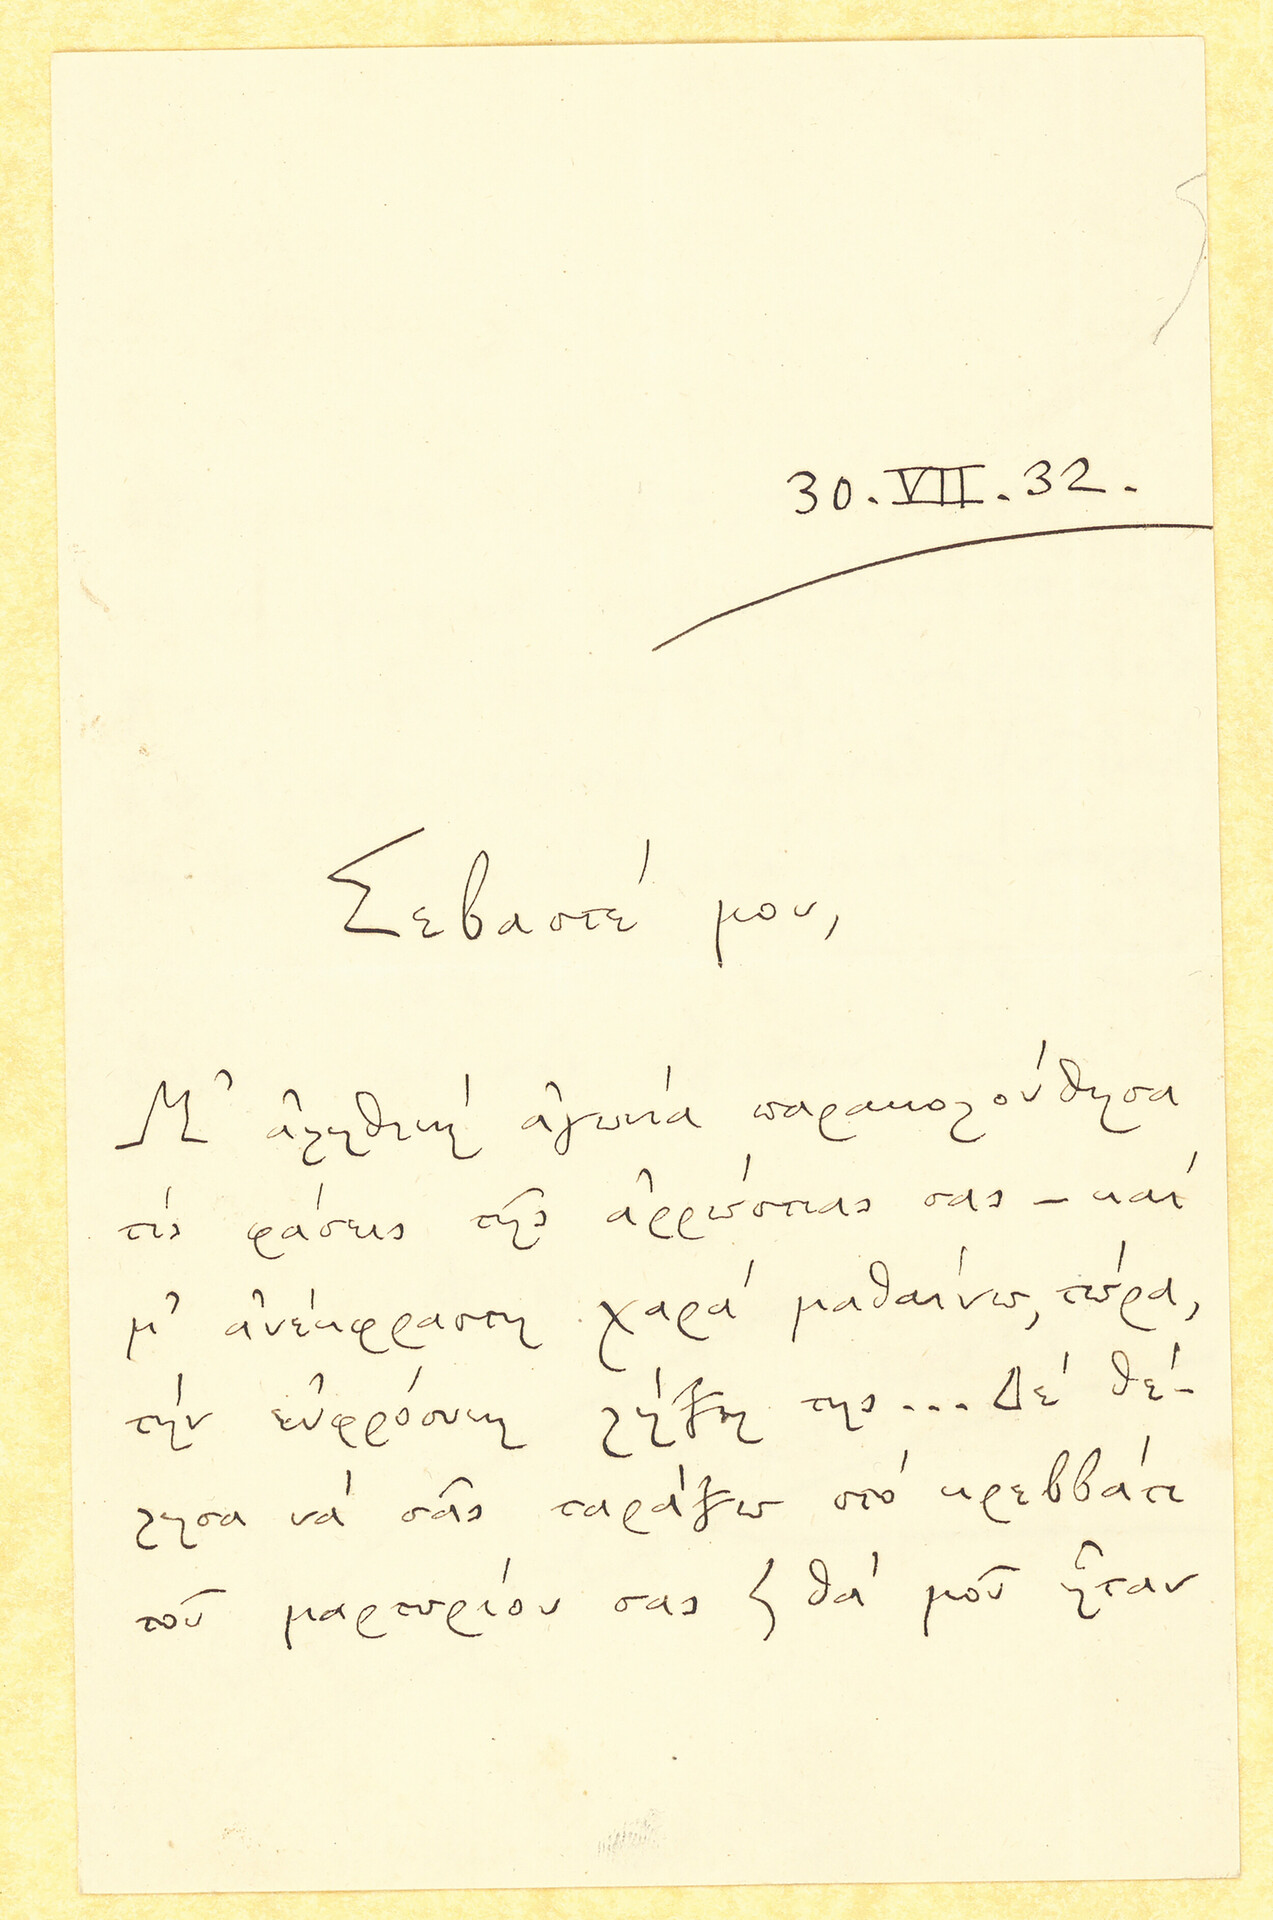 30.VII.32.
Σεβαστέ μου,
Μ' ἀληθινή ἀγωνία παρακολούθησα
τίς φάσεις τῆς ἀρρώστιας σας – καί
μ' ἀνέκφραστη χαρά μαθαίνω, τώρα,
τήν εὐφρόσυνη λήξη της... Δέ θέ-
λησα νά σᾶς ταράξω στό κρεββάτι
τοῦ μαρτυρίου σας ϗ θά μοῦ ἦταν